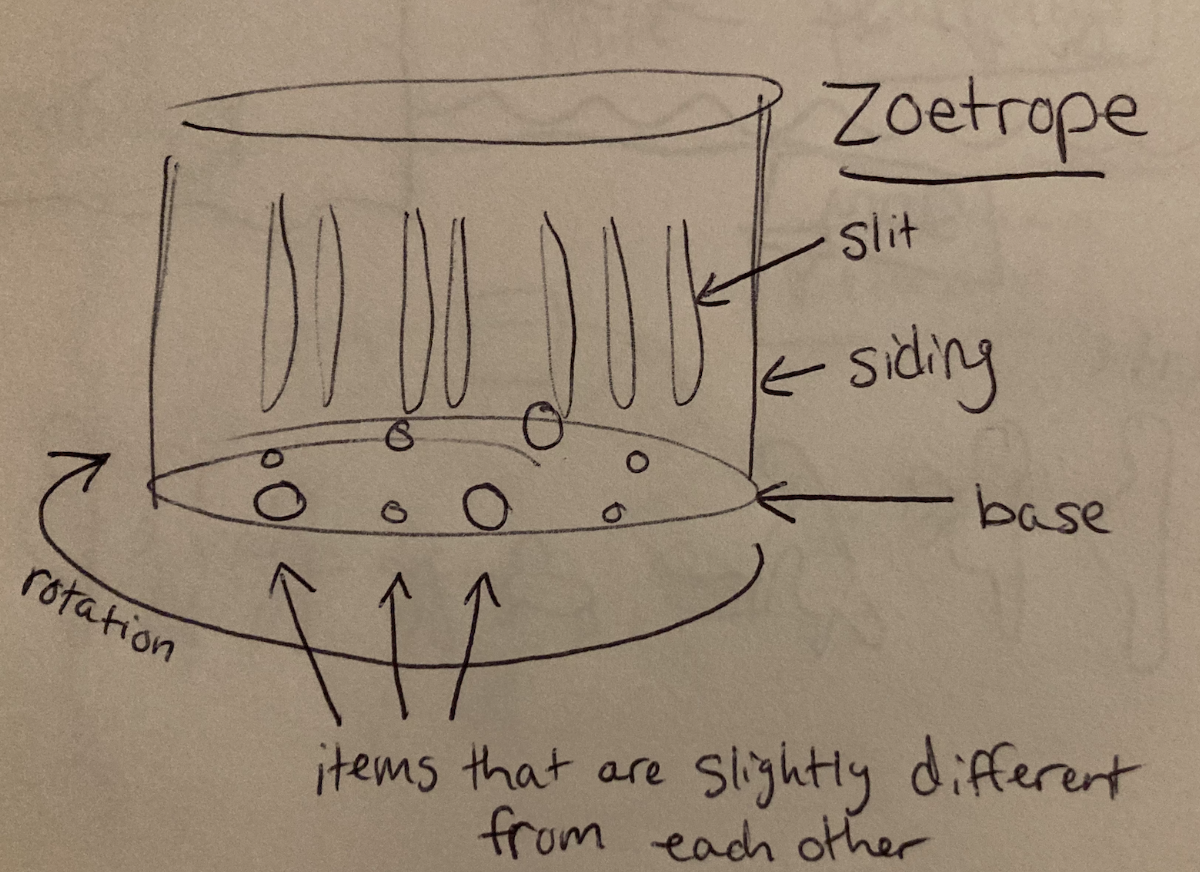 Zoetrope
slit
siding
base
rotation
items that are slightly different
from each other